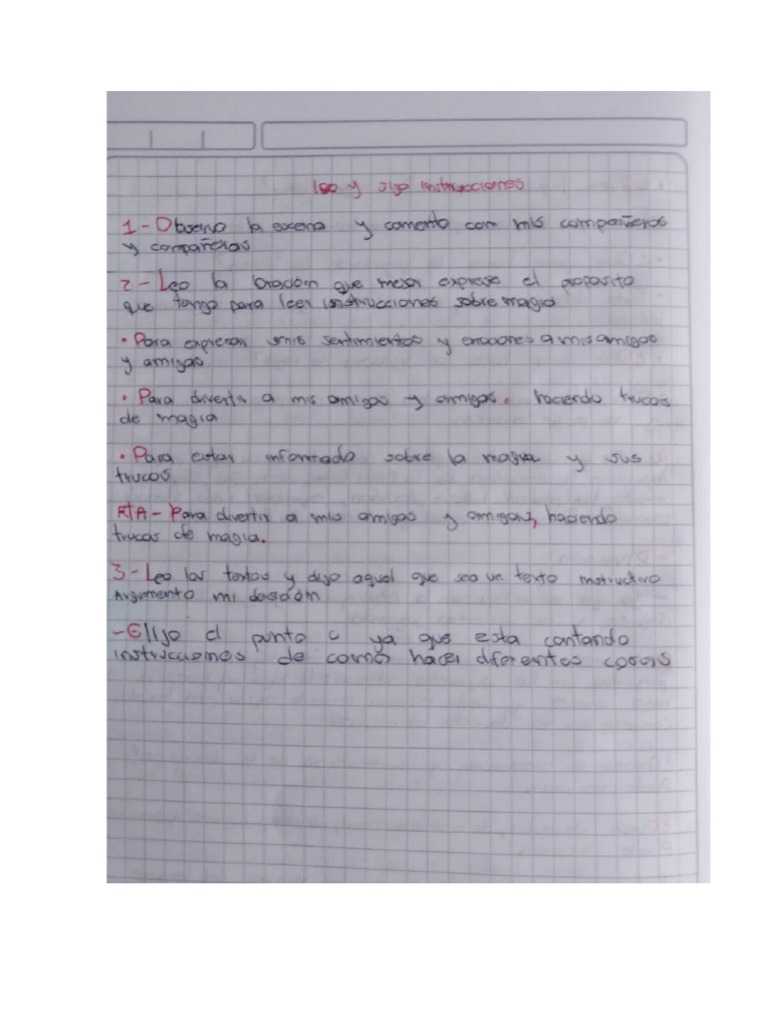 leo y sigo instrucciones
1- Observo la escena y comento con mis compañeros
y compañeras
2- Leo la oración que mejor exprese el proposito
que tengo para leer instrucciones sobre magia
• Para expresar mis sentimientos y emociones a mis amigos
y amigas
• Para divertir a mis amigos y amigas. haciendo trucos
de magia
• Para estar informado sobre la magia y sus
trucos.
RTA- Para divertir a mis amigos y amigas, haciendo
trucos de magia.
3- Leo los textos y digo aquel que sea un texto instructivo
Argumento mi desición
-Elijo el punto c ya que esta contando
instrucciones de como hacer diferentes cosas